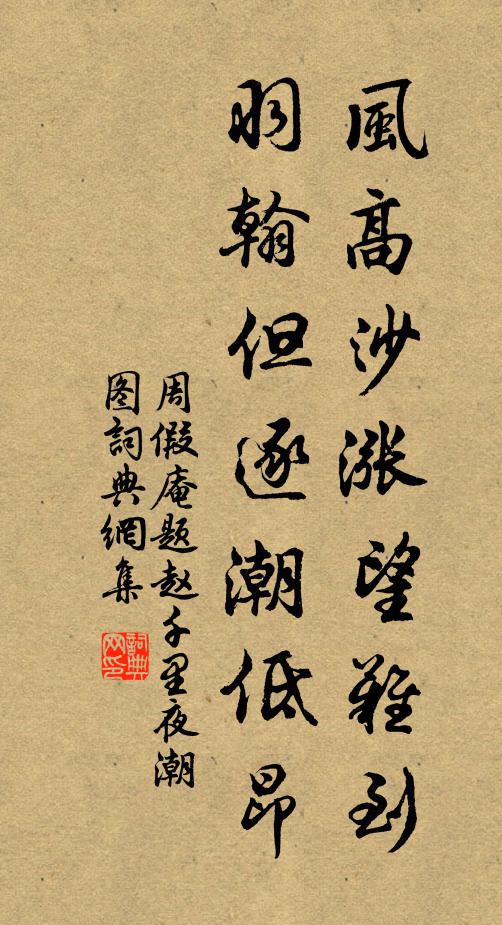 風高沙漲望難到
羽翰但逐潮低昂
周假庵题赵千里夜潮
图詞典網集
詞典
网印